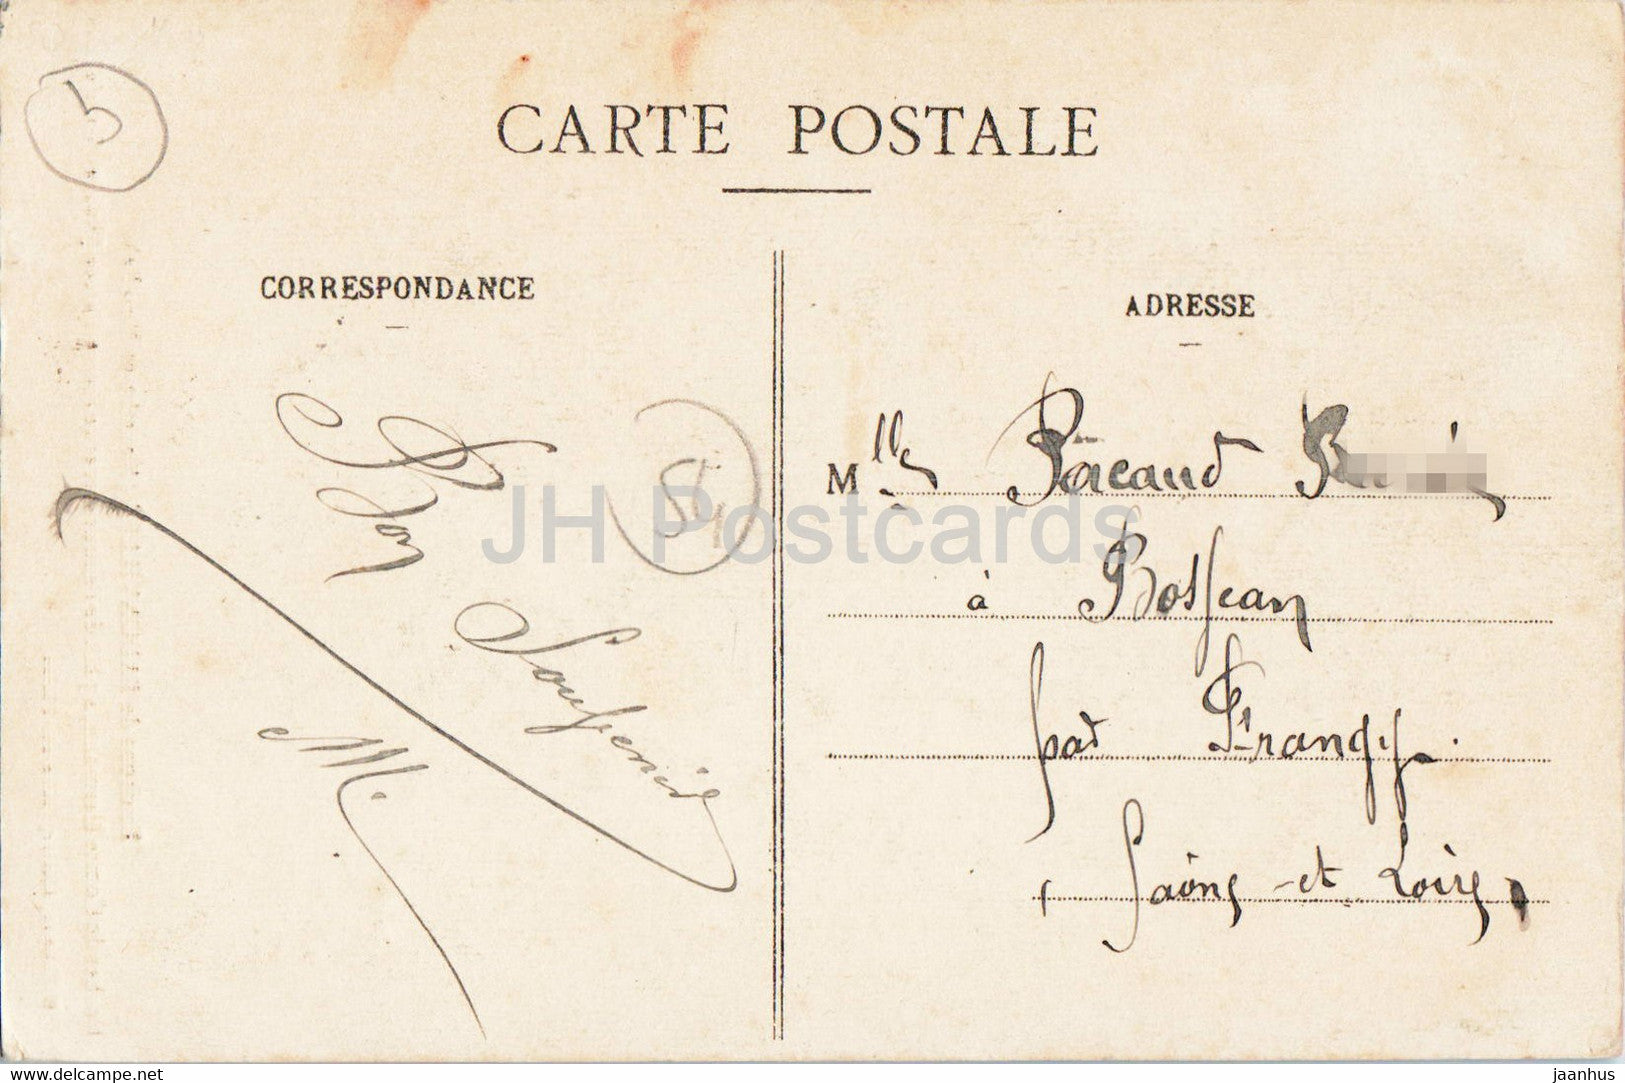 5
CARTE POSTALE
CORRESPONDANCE
Bon
Souvenir
M.
54
ADRESSE
Mlle Pacaud
à Bosjean
par Frangy.
(Saône-et Loire)
JH Postcards
www.delcampe.net
jaanhus